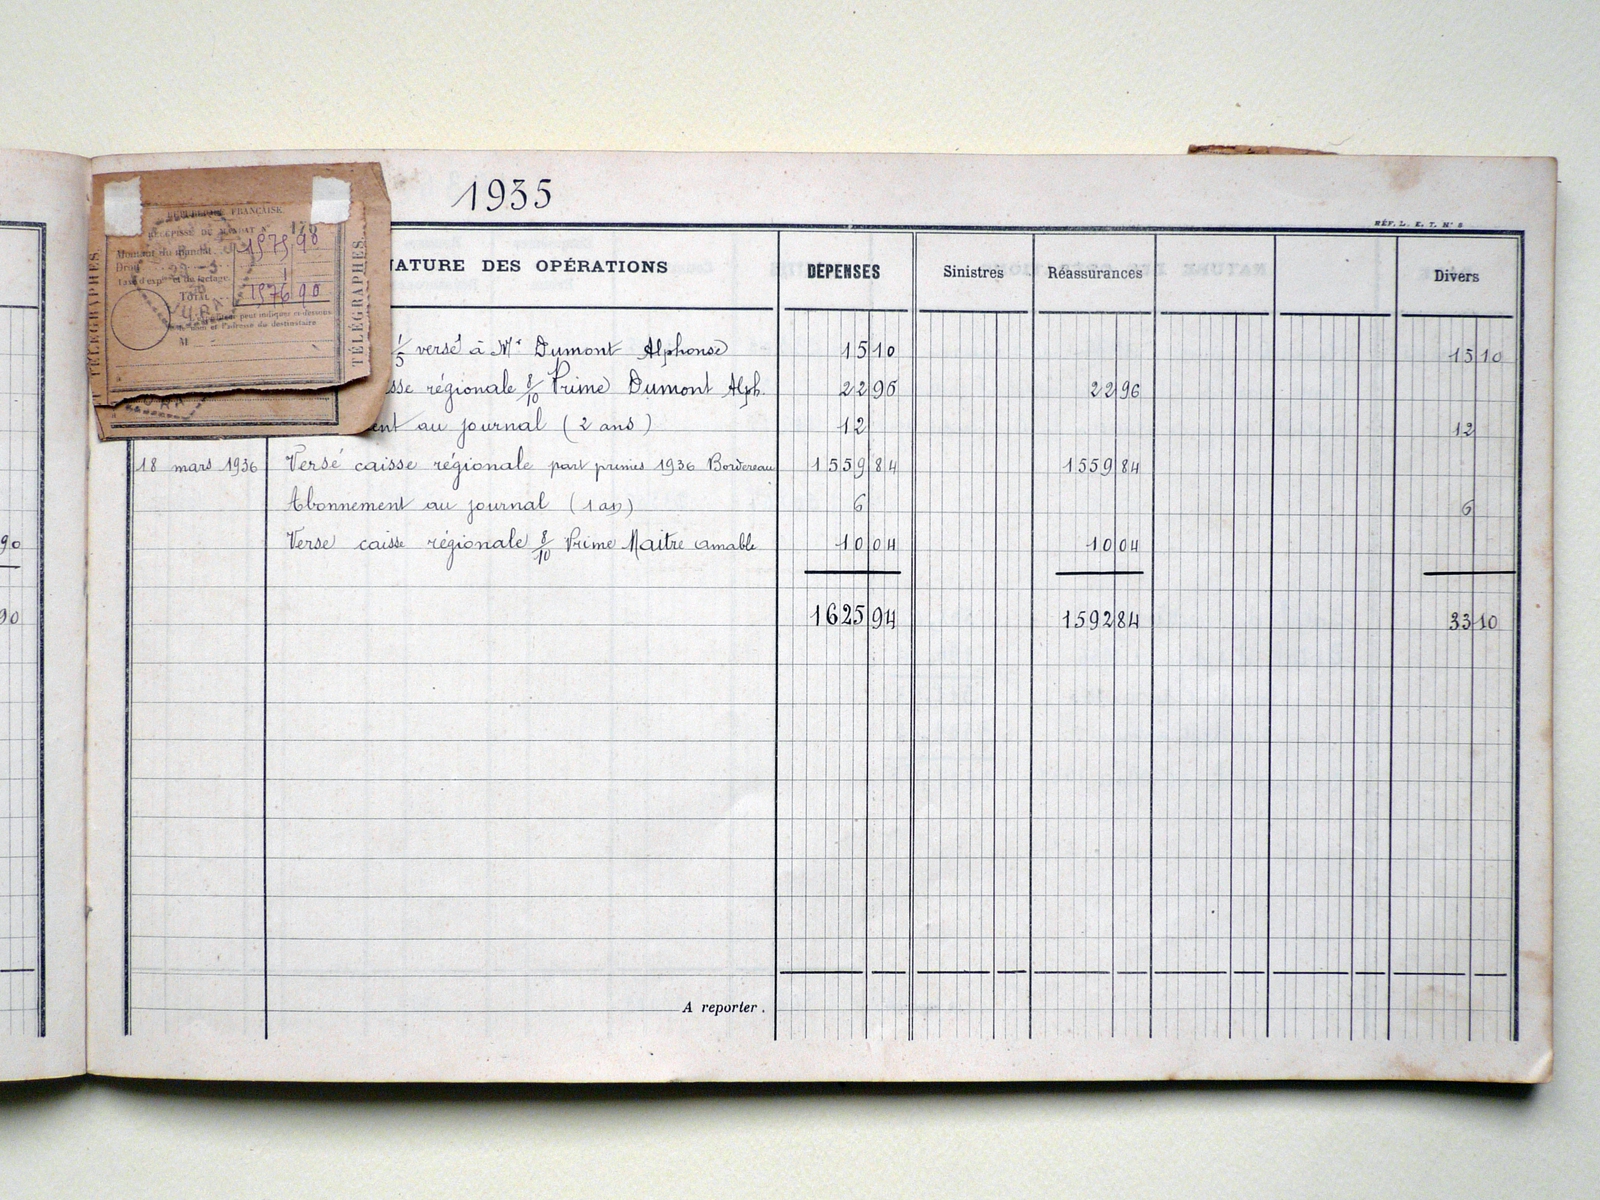 1935
RÉF. L. E. T. N° 5
RÉPUBLIQUE FRANÇAISE
RÉCÉPISSÉ DU MANDAT N°
Montant du mandat 1975,90
Droit 1
Taxe d'exp
TOTAL 1976 90
M
TÉLÉGRAPHES
TÉLÉGRAPHES.
NATURE DES OPÉRATIONS DÉPENSES Sinistres Réassurances Divers
1/5 versé à Mr Dumont Alphonse 15 10 15 10
sse régionale 8/10 Prime Dumont Alph. 22 96 22 96
ent au journal (2 ans) 12 12
18 mars 1936 Versé caisse régionale part primes 1936 Bordereau 1559 84 1559 84
Abonnement au journal (1 an) 6 6
Versé caisse régionale 8/10 Prime Maitre Amable 10 04 10 04
90
1625 94 1592 84 33 10
90
A reporter.